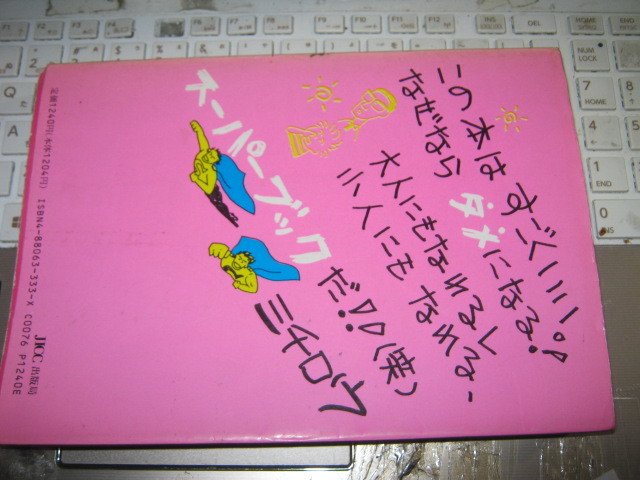 この本は すごくいい!
なぜなら ダメになる!
大人にもなれるし
小人にもなれる-
スーパーブック だ!!(笑)
ミチロウ
定価1240円(本体1204円) ISBN4-88063-333-X C0076 P1240E
JICC 出版局
F6 F7 F8 F9 F10 F11 F12 DEL HOME
NUM LOCK
7 HOME
4 5
1 END
0